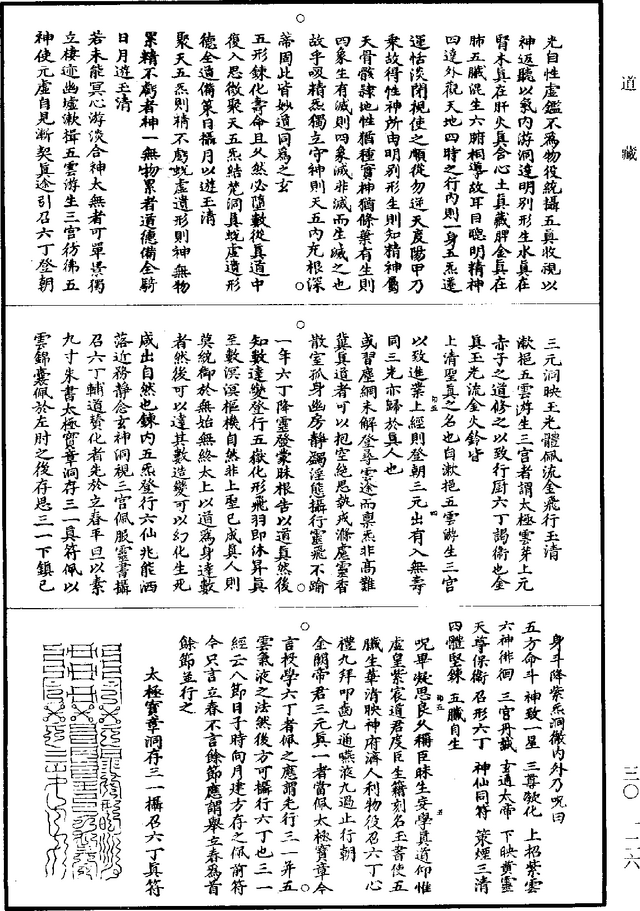 道藏
三〇 一二六
光自性虛鑑不為物役統攝五真收視以
神返聽以氣内游洞達明别形生水真在
腎木真在肝火真含心土真藏脾金真在
肺五臓混生六腑相導故耳目聰明精神
四達外觀天地四時之行内則一身五炁運
運恬淡閉視使之順從勿逆天度陽甲乃
乘故得性神所由明别形生則知精神屬
天骨骸隸地性猶種實神猶條葉有生則
四象生有滅則四象滅非滅而生滅之也
故乎吸精炁獨立守神則天五内充根深
蔕固此皆妙道同為之玄
五形鍊化壽命且久然必隨數從真道中
復入思微聚天五炁結梵洞真蜕虛遺形
德全道備策日攝月以遊玉清
聚天五炁則精不虧蜕虛遺形則神無物
累精不虧者神一無物累者道德備全騎
日月遊玉清
若未能冥心游淡合神太無者可單景獨
立棲迹幽墟漱揖五雲游生三宫彷彿五
神使元虛自見漸契真途引召六丁登朝
三元洞映玉光體佩流金飛行玉清
漱挹五雲游生三宫者謂太極雲芽上元
赤子之道修之以致行厨六丁謁衛也金
真玉光流金火鈴皆
上清聖真之名也自漱挹五雲游生三宫
以致進業上經則登朝三元出有入無壽
同三光亦歸於真人也
或習塵網未解登尋雲途而稟炁非高難
冀真道者可以抱空絶思執戒滌慮靈香
散室孤身幽房靜蠲淫態攝行靈飛不踰
一年六丁降靈登蒙昧根告以道真然後
知數達變登行五嶽化形飛羽即休昇真
至數溟溟樞機自然非上聖已成真人則
莫統御於無始無終太上以道為身達數
者然後可以達其數造變可以幻化生死
咸出自然也鍊内五炁登行六仙兆能洒
落近務静念玄神洞視三宫佩服靈書攝
召六丁輔道贊化者先於立春平旦以素
九寸朱書太極寳章洞存三一真符佩以
雲錦囊佩於左肘之後存思三一下鎮已
身斗降紫炁洞徹内外乃呪曰
五方命斗 神致一星 三尊敬化 上招紫雲
六神徘徊 三宫丹城 玄通太帝 下映黄靈
天尊保衛 召形六丁 神仙同符 策煙三清
四體堅鍊 五臓自生
呪畢凝思良久稱臣昧生妄學真道仰惟
虛皇紫宸道君度臣生籍刻名玉書使五
臓生華清映神府濟人利物役召六丁心
禮九拜叩齒九通嚥液九過止行朝
金闕帝君三元真一者當佩太極寳章今
言投學六丁者佩之應謂先行三一并五
雲氣液之法然後方可攝行六丁也三一
經云八節日子時向月建方存之佩前符
今只言立春不言餘節應謂舉立春為首
餘節並行之
太極寳章洞存三一攝召六丁真符